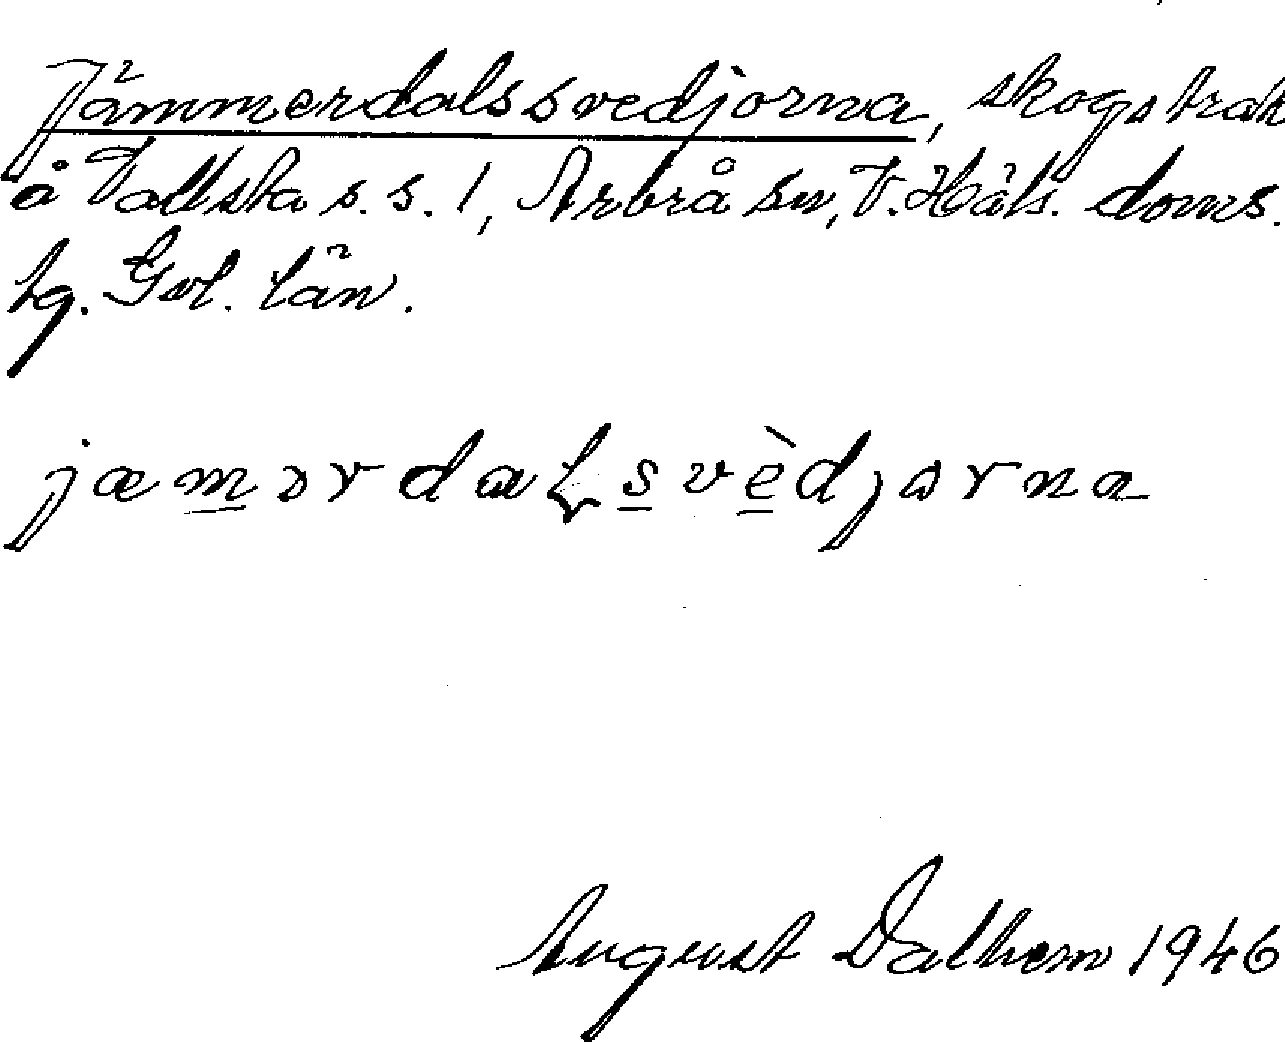 Jämmerdalssvedjorna, skogstrak
å Vallsta s. s. 1, Arbrå sn, V. Häls. doms.
hg. Gvl. län.
jæmərdalsvèdjorna
August Dalhem 1946